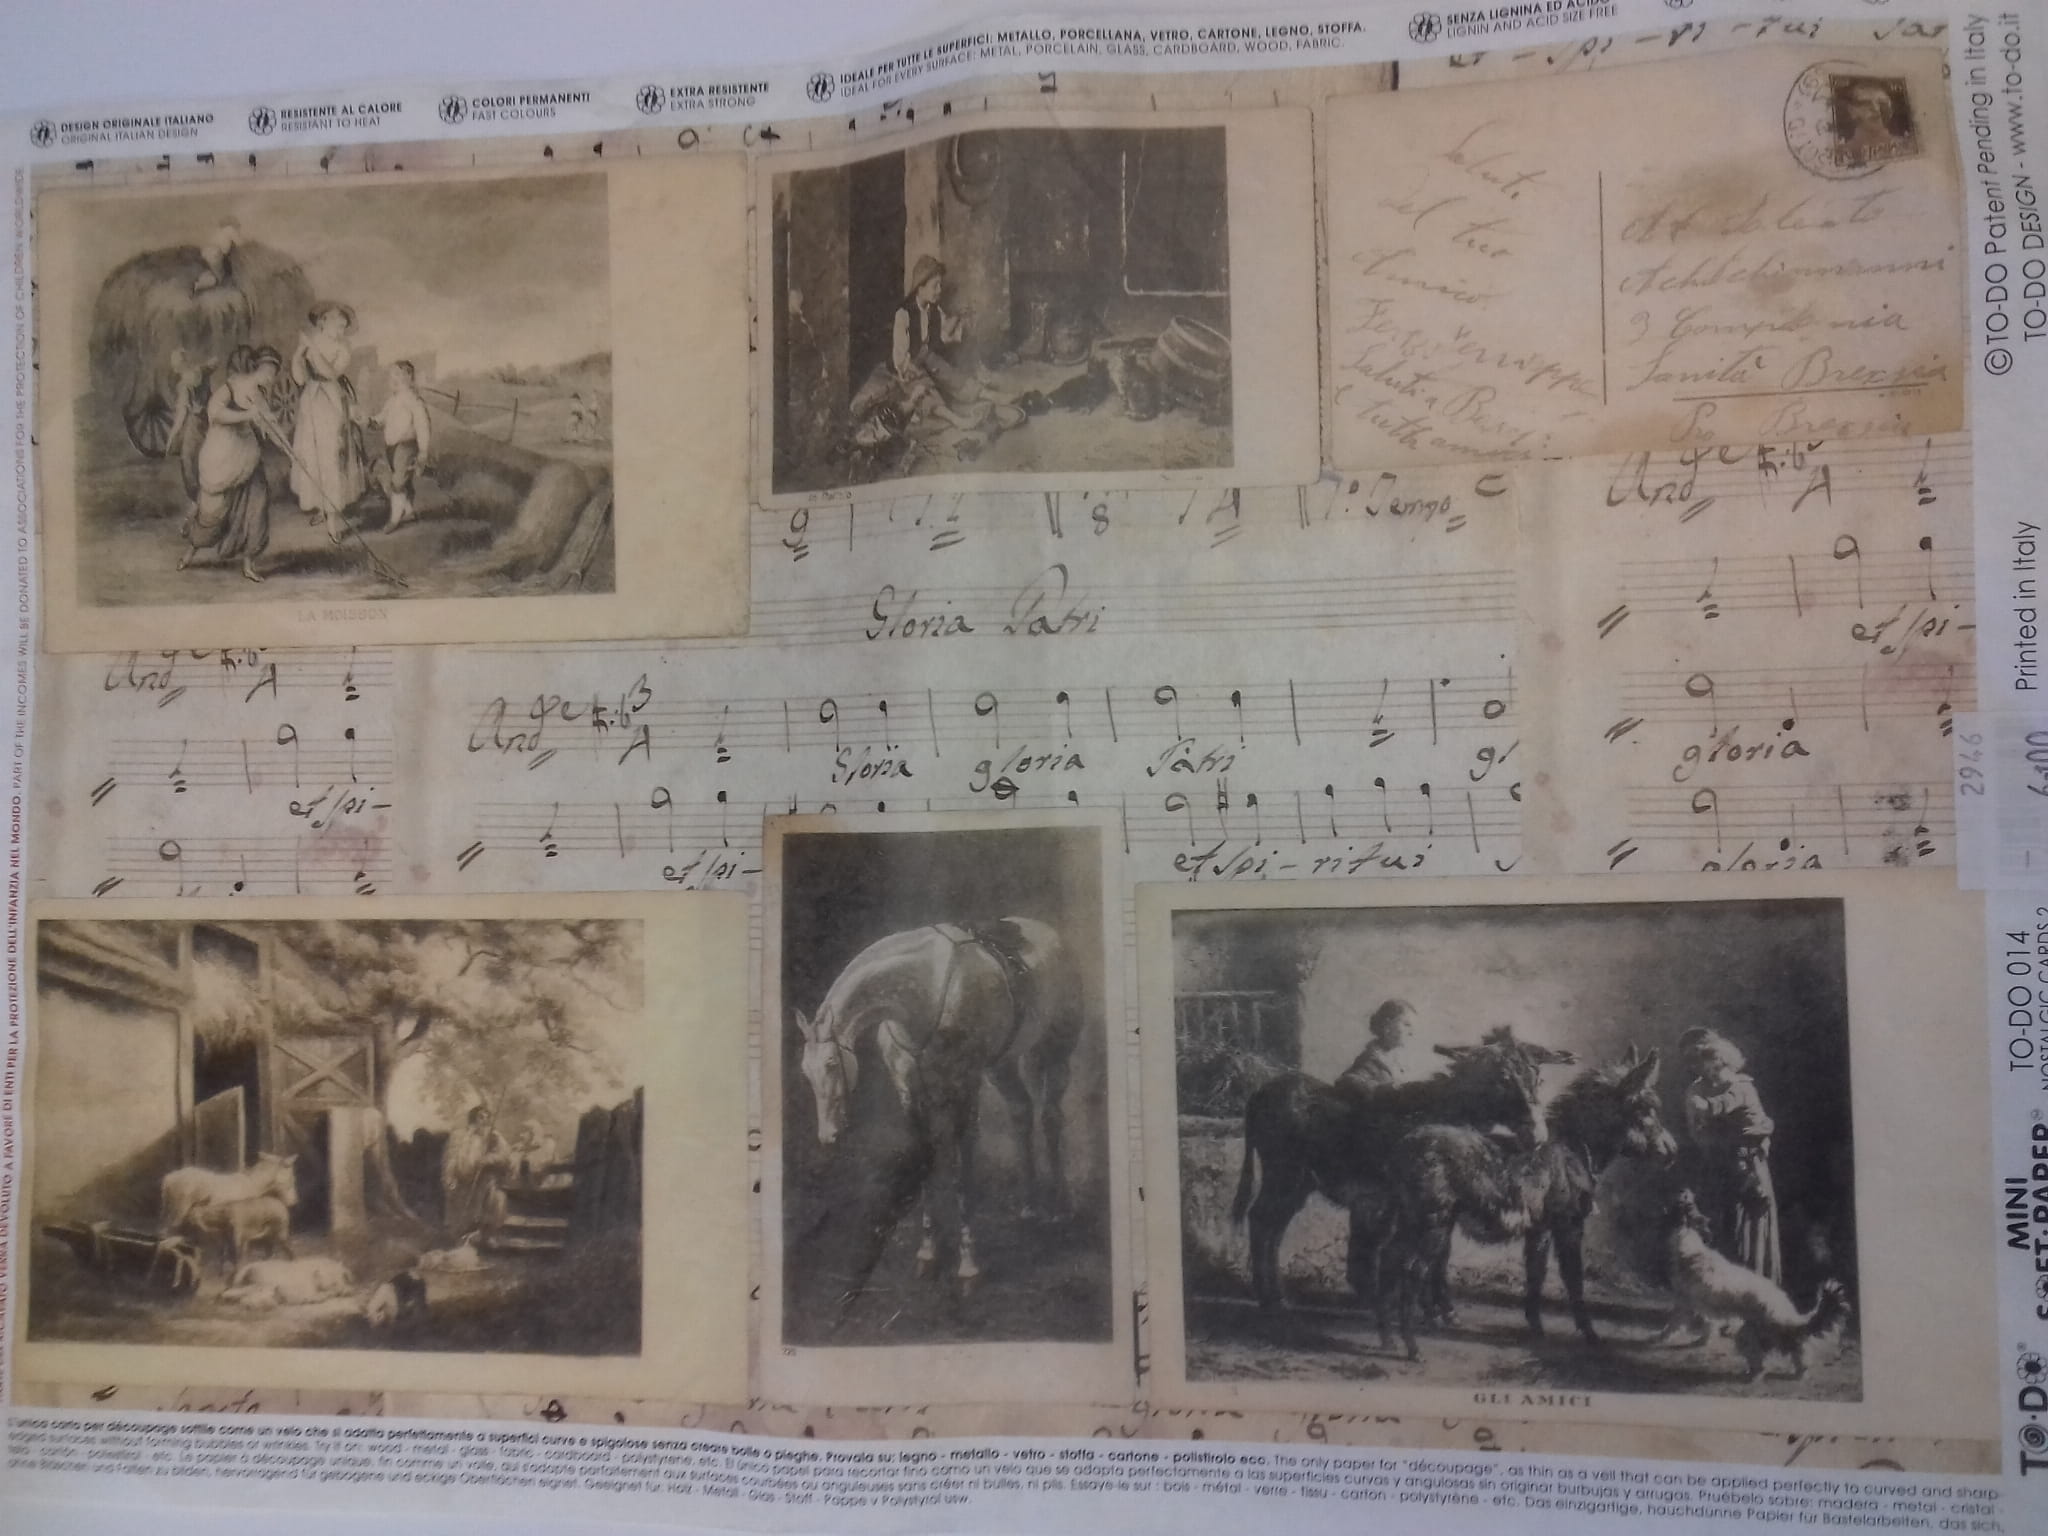 DESIGN ORIGINALE ITALIANO
ORIGINAL ITALIAN DESIGN
RESISTENTE AL CALORE
RESISTANT TO HEAT
COLORI PERMANENTI
FAST COLOURS
EXTRA RESISTENTE
EXTRA STRONG
IDEALE PER TUTTE LE SUPERFICI: METALLO, PORCELLANA, VETRO, CARTONE, LEGNO, STOFFA.
IDEAL FOR EVERY SURFACE: METAL, PORCELAIN, GLASS, CARDBOARD, WOOD, FABRIC.
SENZA LIGNINA ED
LIGNIN AND ACID SIZE FREE
Saluti
del tuo
Amico
Saluti a
e tutti amici
3 Compagnia
Sanità Brescia
LA MOISSON
1º Tempo
Gloria Patri
And
et spi-
And
Gloria gloria Patri gl
et spi- et spi-ritui
And
et spi-
gloria
gloria
GLI AMICI
©TO-DO Patent Pending in Italy
TO-DO DESIGN - www.to-do.it
Printed in Italy
2946
TO-DO 014
NOSTALGIC CARDS 2
MINI
SOFT-PAPER®
TO-DO®
PARTE DEL RICAVATO VERRÀ DEVOLUTO A FAVORE DI ENTI PER LA PROTEZIONE DELL'INFANZIA NEL MONDO. PART OF THE INCOMES WILL BE DONATED TO ASSOCIATIONS FOR THE PROTECTION OF CHILDREN WORLDWIDE
L'unica carta per découpage sottile come un velo che si adatta perfettamente a superfici curve e spigolose senza creare bolle o pieghe. Provala su: legno - metallo - vetro - stoffa - cartone - polistirolo ecc. The only paper for "découpage", as thin as a veil that can be applied perfectly to curved and sharp-
edged surfaces without forming bubbles or wrinkles. Try it on: wood - metal - glass - fabric - cardboard - polystyrene, etc. El único papel para recortar fino como un velo que se adapta perfectamente a las superficies curvas y angulosas sin originar burbujas y arrugas. Pruébelo sobre: madera - metal - cristal -
tela - cartón - poliestirol - etc. Le papier à découpage unique, fin comme un voile, qui s'adapte parfaitement aux surfaces courbées ou anguleuses sans créer ni bulles, ni plis. Essaye-le sur : bois - métal - verre - tissu - carton - polystyrène - etc. Das einzigartige, hauchdünne Papier für Bastelarbeiten, das sich,
ohne Bläschen und Falten zu bilden, hervorragend für gebogene und eckige Oberflächen eignet. Geeignet für: Holz - Metall - Glas - Stoff - Pappe v Polystyrol usw.